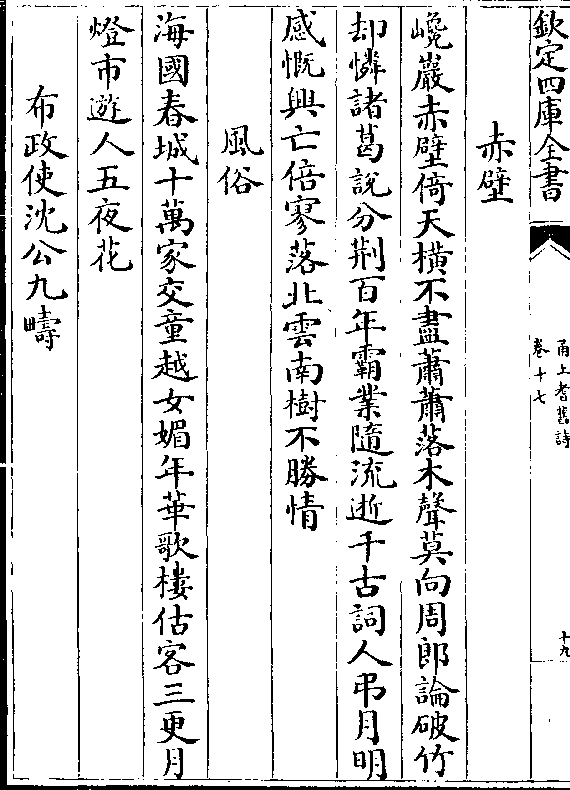 欽定四庫全書
甬上耆舊詩
卷十七
十九
赤壁
巉巖赤壁倚天橫不盡蕭蕭落木聲莫向周郎論破竹
却憐諸葛說分荆百年霸業隨流逝千古詞人弔月明
感慨興亡倍寥落北雲南樹不勝情
風俗
海國春城十萬家交童越女媚年華歌樓估客三更月
燈市遊人五夜花
布政使沈公九疇